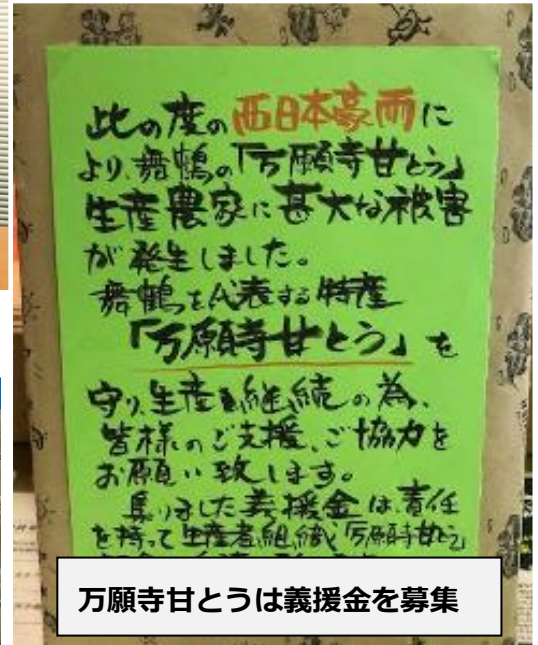 此の度の西日本豪雨に
より、舞鶴の「万願寺甘とう」
生産農家に甚大な被害
が発生しました。
舞鶴を代表する特産
「万願寺甘とう」を
守り、生産を継続の為、
皆様のご支援、ご協力を
お願い致します。
集りました義援金は、責任
を持って生産者組織「万願寺甘とう
万願寺甘とうは義援金を募集